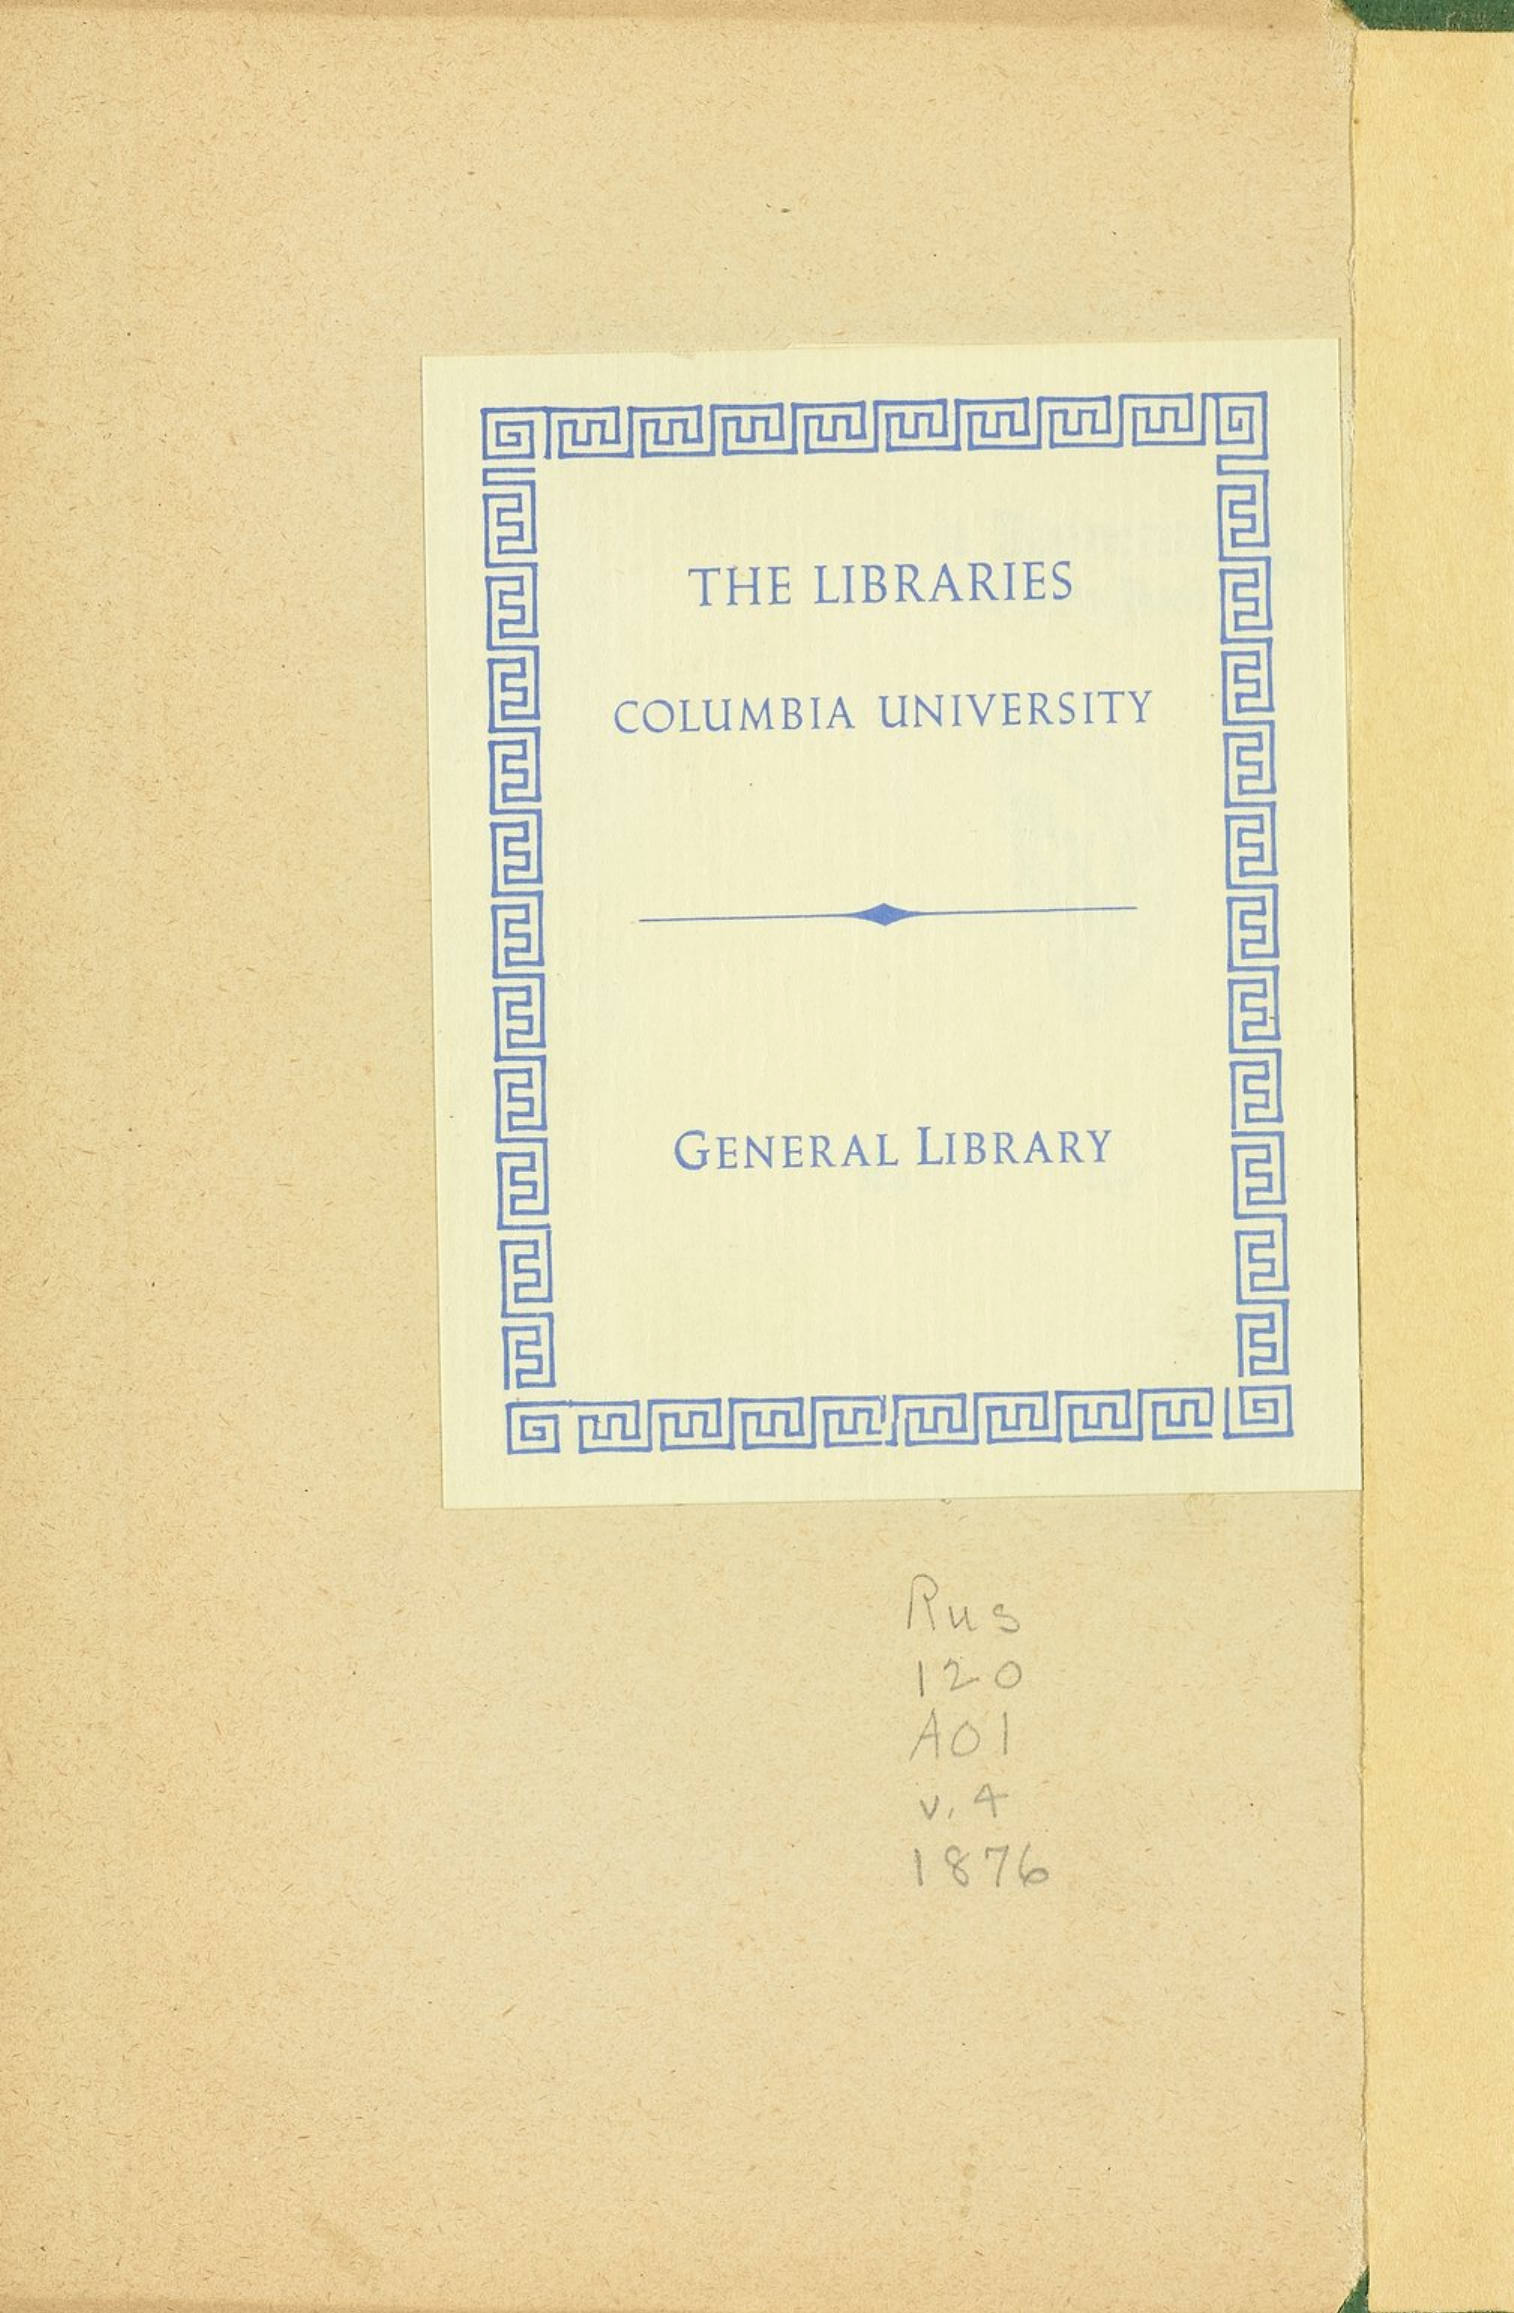 THE LIBRARIES
COLUMBIA UNIVERSITY
GENERAL LIBRARY
Rus
120
A01
v. 4
1876